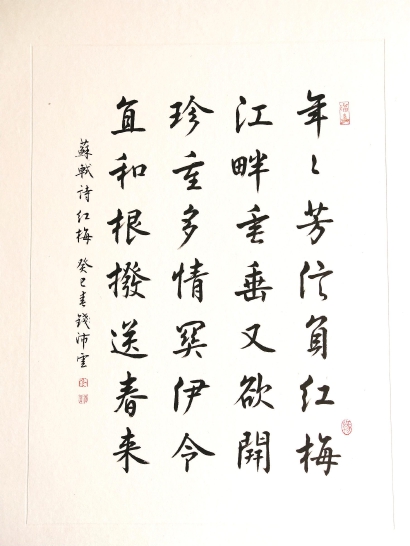 年〻芳信負紅梅
江畔垂垂又欲開
珍重多情關伊令
直和根撥送春来
蘇軾詩紅梅 癸巳春錢沛雲